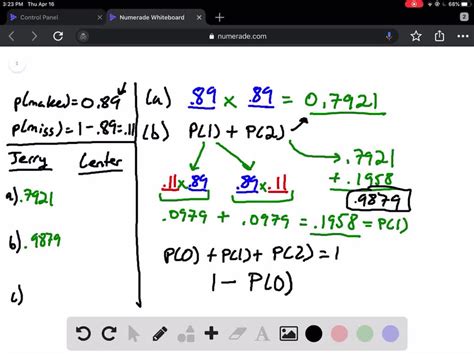 3:23 PM Thu Apr 16
66%
Control Panel
Numerade Whiteboard
numerade.com
2
1
p(make)=0.89
p(miss)=1-.89=.11
Jerry Center
a) .7921
b) .9879
c)
(a) .89 x .89 = 0.7921
(b) P(1) + P(2)
.7921
+ .1958
.9879
.11 x .89 .89 x .11
.0979 + .0979 = .1958 = P(1)
P(0) + P(1) + P(2) = 1
1 - P(0)
A